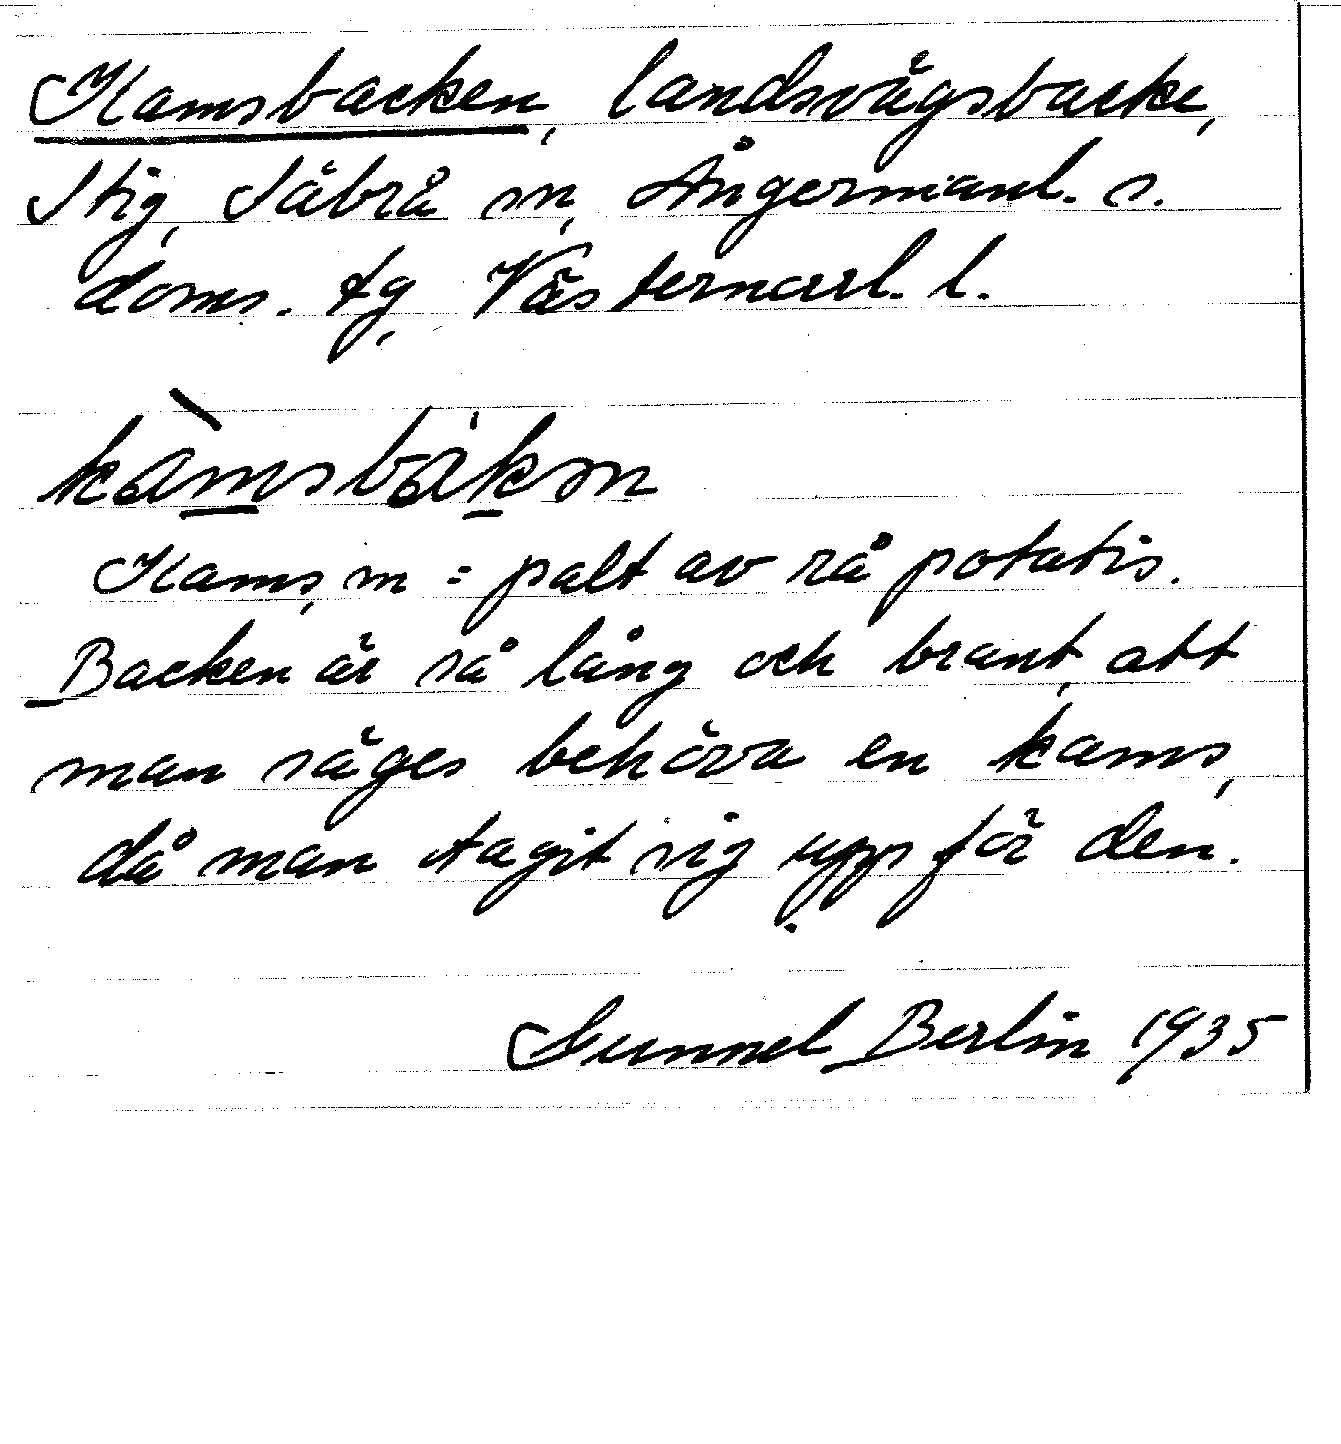 Kamsbacken, landsvägsbacke,
Stig, Säbrå sn, Ångermanl. s.
doms. tg, Västernorrl. l.
kàmsbáksn
Kams, m = palt av rå potatis.
Backen är så lång och brant, att
man säges behöva en kams,
då man tagit sig upp för den.
Gunnel Berlin 1935